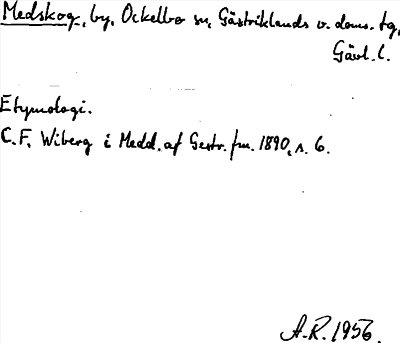 Medskog, by, Ockelbo sn, Gästriklands v. doms. tg,
Gävl. l.
Etymologi.
C.F. Wiberg i Medd. af Gestr. fm. 1890, s. 6.
A.R. 1956.